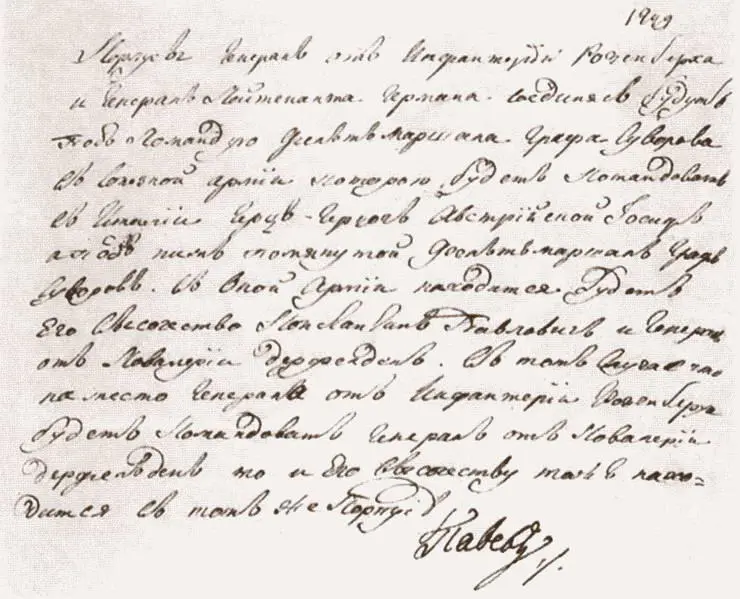 1799
Корпусъ Генерала отъ Инфантеріи Розенберха
и Генералъ Лейтенанта Германа соединясь будутъ
подъ командую Фельтъмаршала Графа Суворова
въ союзной арміи которою будетъ командовать
въ Италіи Герцъ-Герцогъ Австрійской Іосифъ
а подъ нимъ помянутой Фельтъмаршалъ Графъ
Суворовъ. въ оной арміи находится будетъ
Его высочество Константинъ Павловичъ и Генералъ
отъ Кавалеріи Дерфельденъ. въ томъ случае что
на место Генерала отъ Инфантеріи Розенберха
будетъ командовать Генералъ отъ Кавалеріи
Дерфельденъ то и Его высочеству тоже нахо=
дится въ томъ же Корпусѣ
Павелъ